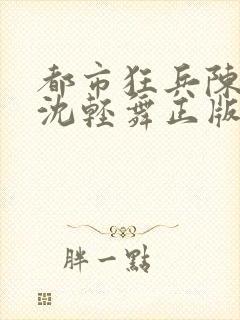 都市狂兵陳
沈輕舞正版
胖一點